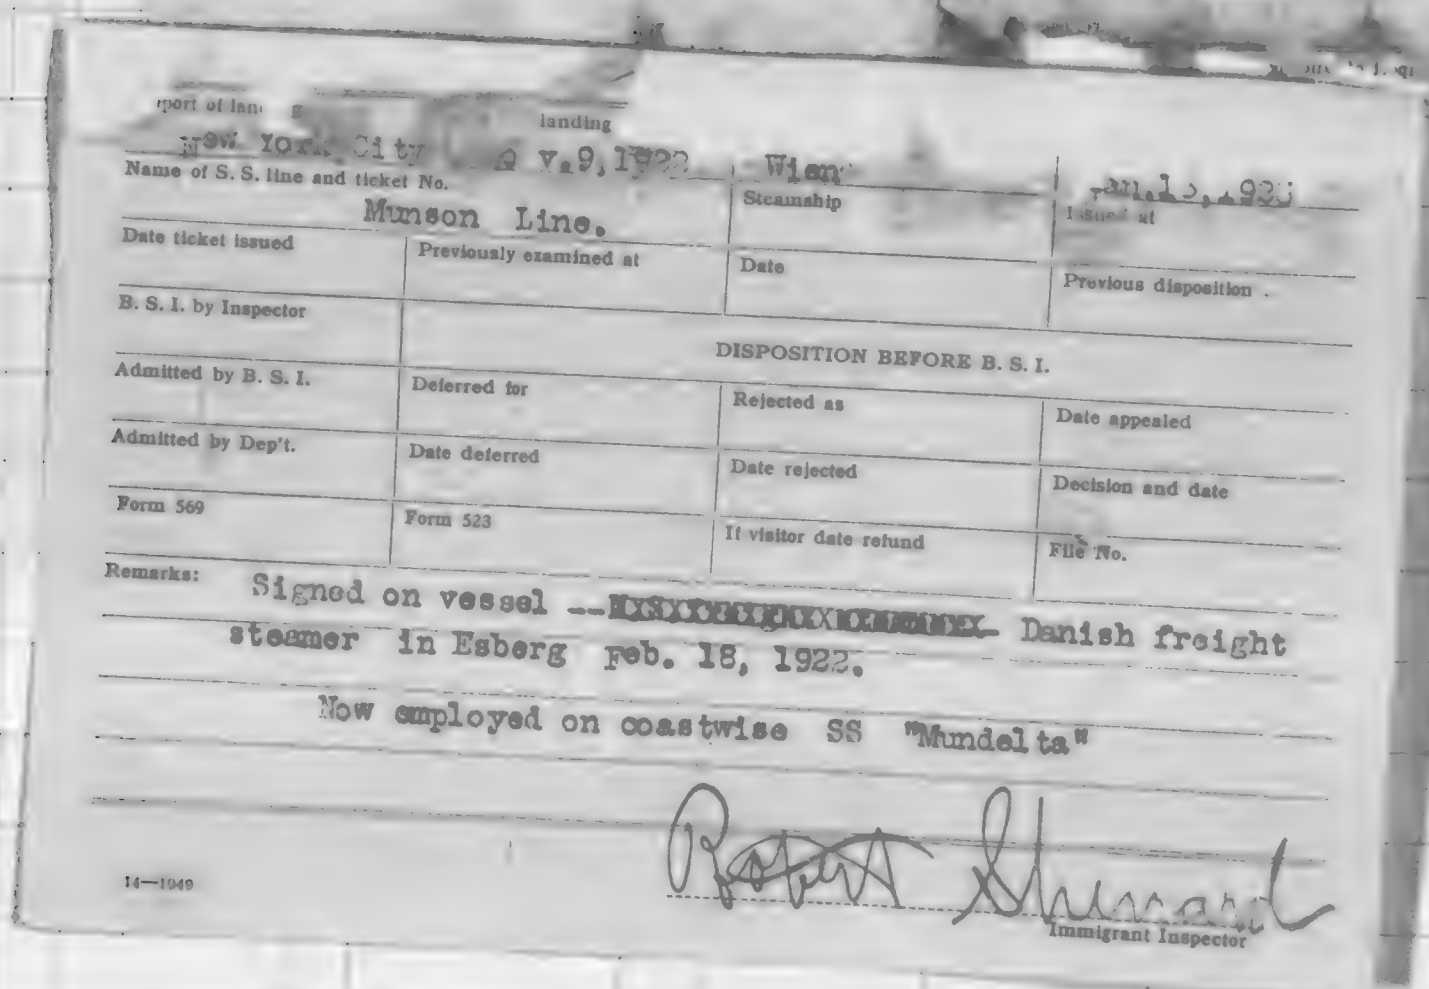 port of landing
landing
New York City
9, 1922
Wien
Name of S. S. line and ticket No.
Steamship
Issued at
Munson Line.
Date ticket issued
Previously examined at
Date
Previous disposition
B. S. I. by Inspector
DISPOSITION BEFORE B. S. I.
Admitted by B. S. I.
Deferred for
Rejected as
Date appealed
Admitted by Dep't.
Date deferred
Date rejected
Decision and date
Form 569
Form 523
If visitor date refund
File No.
Remarks:
Signed on vessel -- Danish freight
steamer in Esberg Feb. 18, 1922.
Now employed on coastwise SS "Mundelta"
Robert
Immigrant Inspector
14—1949